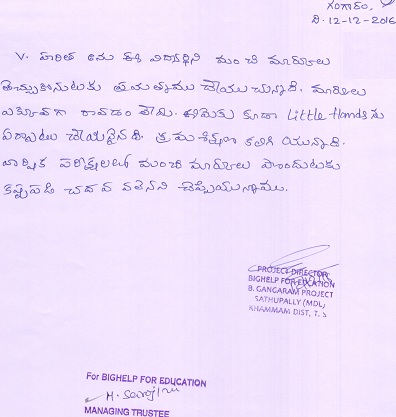 గంగారం,
ది. 12-12-2016
V. హరిత ఈమె ఈ విద్యార్థిని మంచి మార్కులు
తెచ్చుకొనుటకు ప్రయత్నము చేయుచున్నాది. మార్కులు
ఎక్కువగా రావడం లేదు. ఈమెకు కూడా Little Hands ను
ఏర్పాటు చేయడమైనది. క్రమశిక్షణ కలిగి యున్నాది.
వార్షిక పరీక్షలలో మంచి మార్కులు పొందుటకు
కష్టపడి చదవ వలెనని చెప్పియున్నాము.
PROJECT DIRECTOR
BIGHELP FOR EDUCATION
B. GANGARAM PROJECT
SATHUPALLY (MDL)
KHAMMAM DIST, T. S
For BIGHELP FOR EDUCATION
MANAGING TRUSTEE